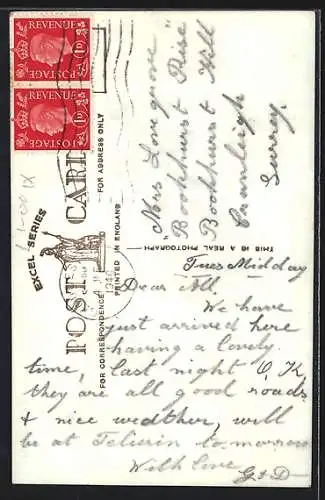 POSTAGE REVENUE 1D
POSTAGE REVENUE 1D
EXCEL SERIES
POST CARD
FOR CORRESPONDENCE
PRINTED IN ENGLAND
FOR ADDRESS ONLY
THIS IS A REAL PHOTOGRAPH
Mrs Lovegrove
"Bookhurst Rise"
Bookhurst Hill
Cranleigh
Surrey.
Tues Midday
Dear All.
We have
just arrived here
having a lovely
time, last night O,K
they are all good roads
& nice weather, will
be at to morrow
With love
G & D